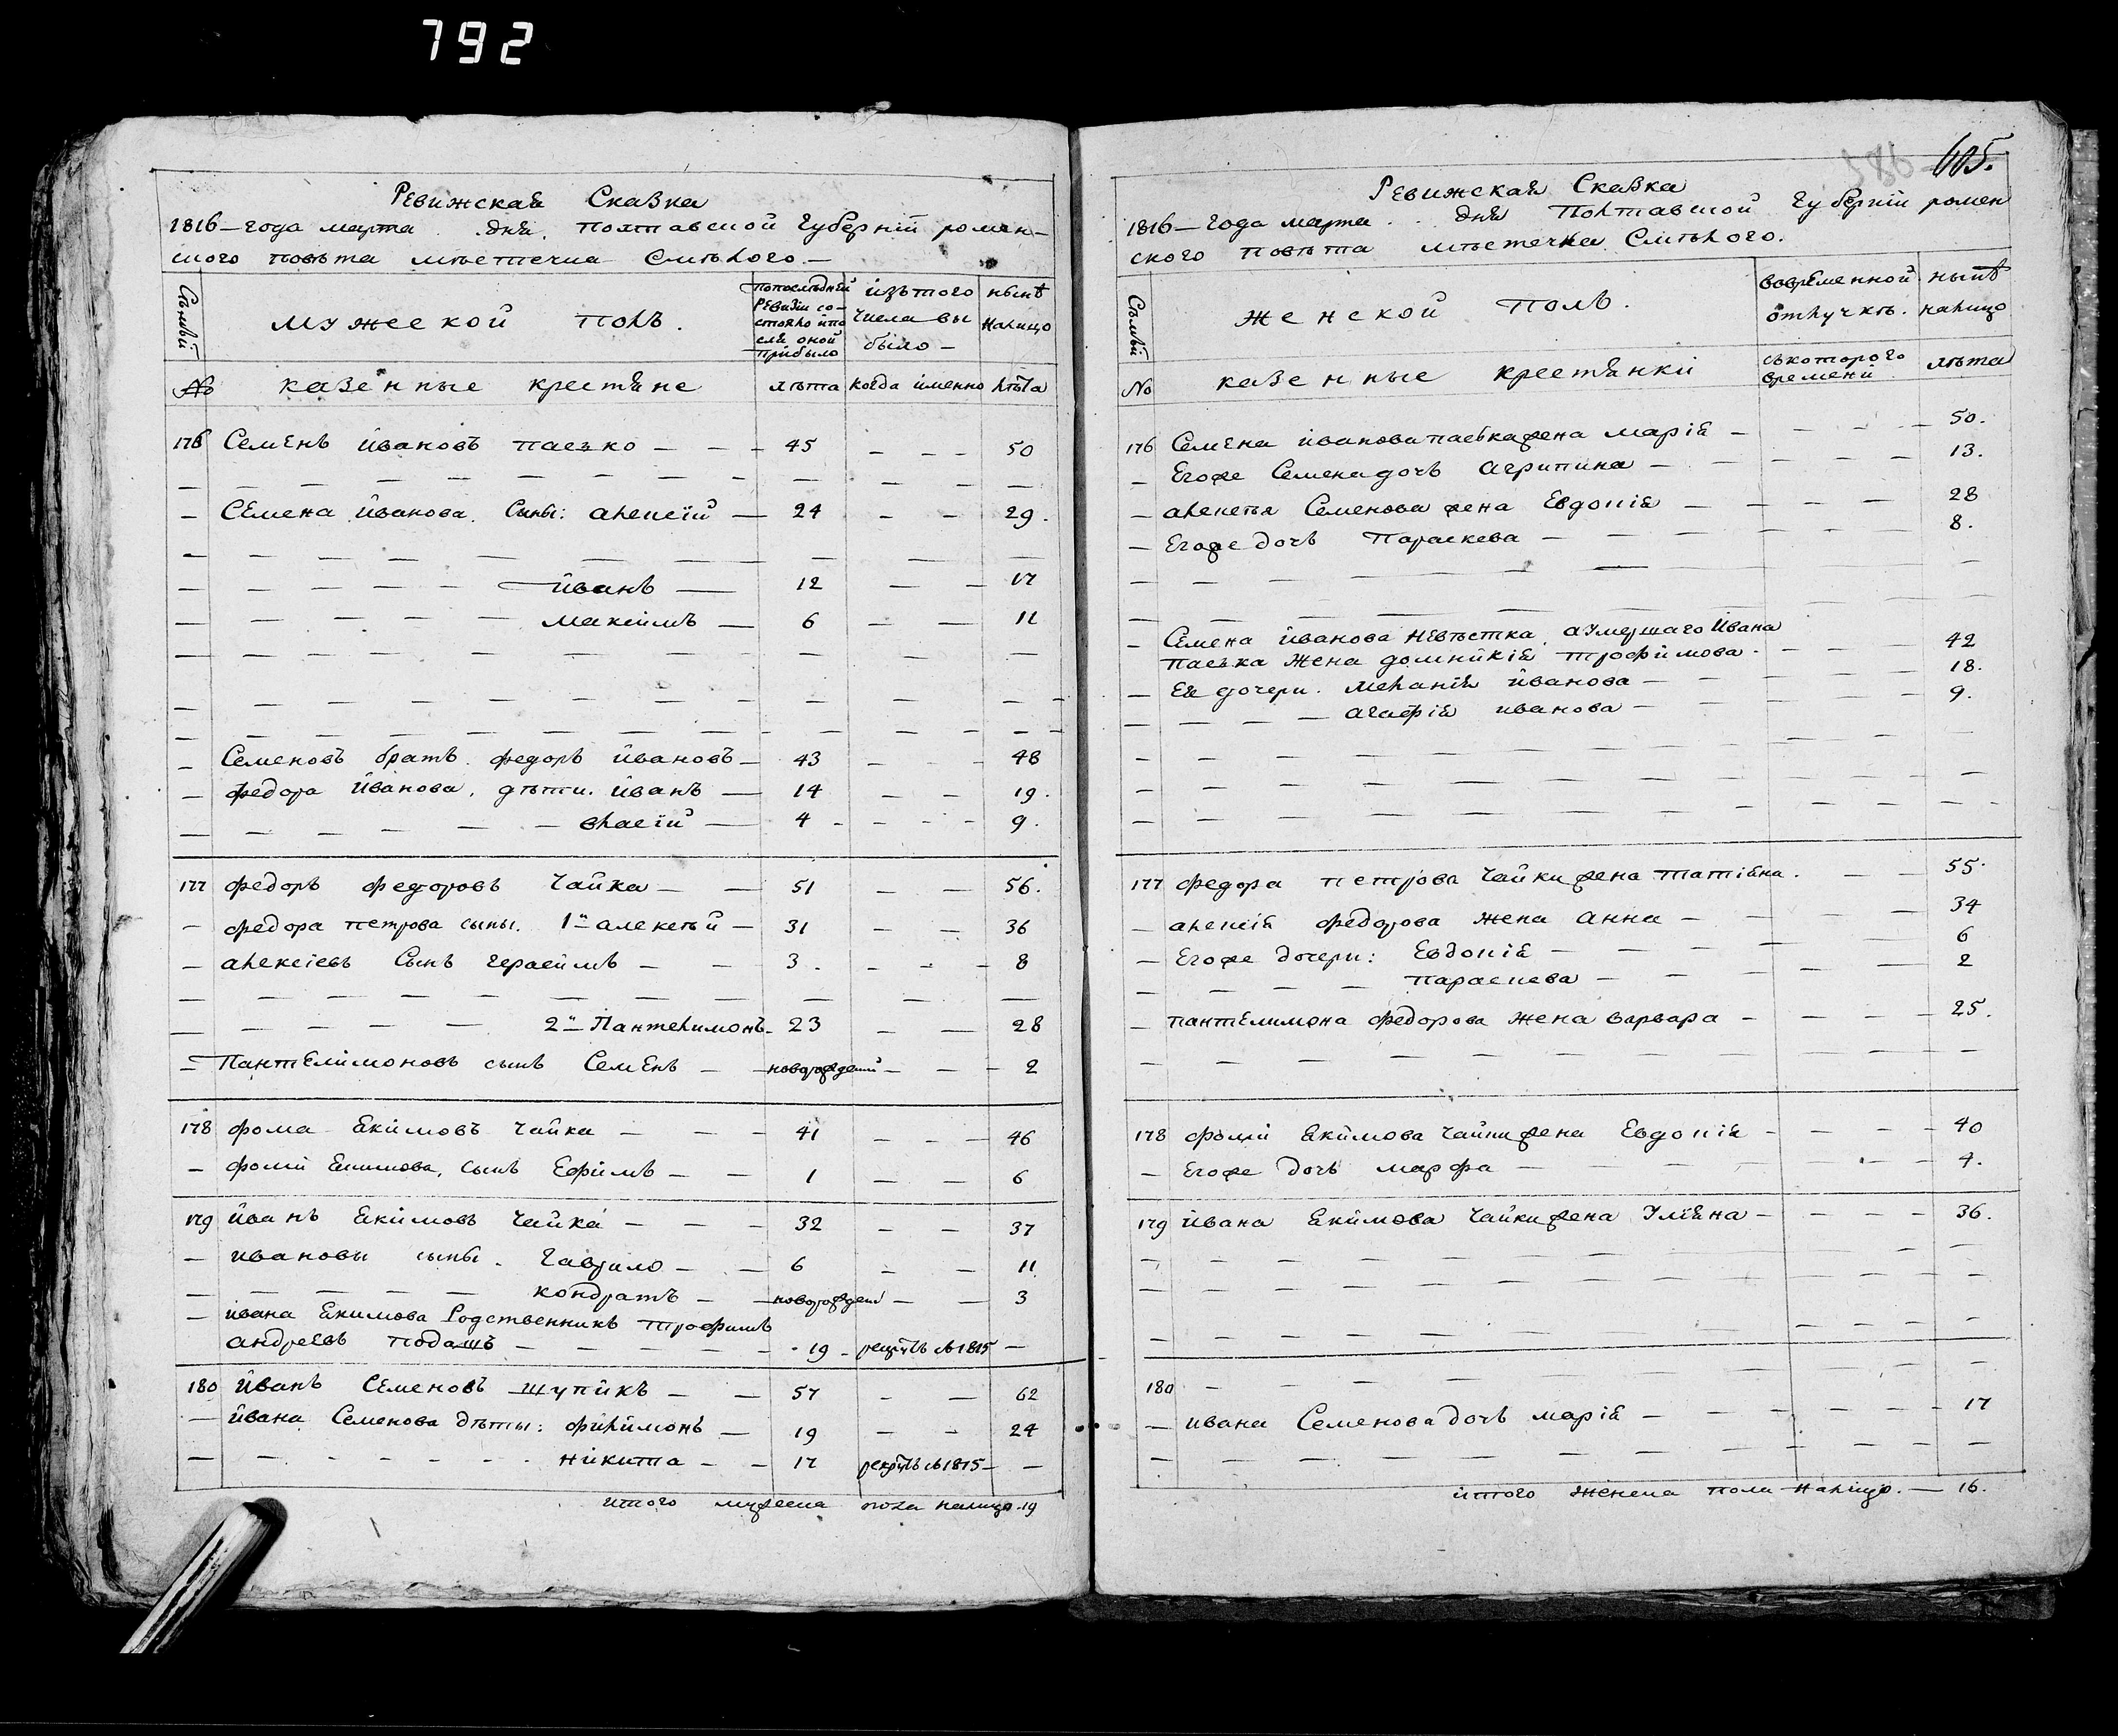 792
Ревижская Сказка
1816–года марта . дня . полтавской Губернїи ромен–
ского повѣта мѣстечка Смѣлого. –
Сѣмьи
мужеской полъ.
попослѣдней ревизїи состояло ипосля оной прибыло
изъ того числа выбыло –
нынѣ налицо
№ казенные крестяне лѣта когда именно лѣта
176 Семенъ Ивановъ паезко – – – 45 – – – 50
– Семена Иванова. Сыны: алексїй – 24 – – 29.
– – – – – Иванъ – 12 – – 17
– – – – – максимъ – 6 – – 11
– Семеновъ братъ. федоръ Ивановъ – 43 – – – 48
– федора Иванова, дѣти. Иванъ – 14 – – 19.
– – – – – – власїй – 4 – – – – 9.
177 федоръ федоровъ Чайка – – 51 – – 56.
– федора петрова сыны. 1й алексѣй – 31 – – 36
– алексїевъ Сынъ герасимъ – – 3. – – – 8
– – – – – 2й Пантелимонъ – 23 – – 28
– Пантелимоновъ сынъ Семенъ – – новорожденій – – – 2
178 фома Екимовъ Чайка – – – 41 – – – 46
– фоми Екимова, сынъ Ефимъ – – 1 – – 6
179 Иванъ Екимовъ Чайка – – – 32 – – 37
– Ивановы сыны. Гаврило – – 6 – – 11
– – – – – кондратъ – – новорожден – – 3
– Ивана Екимова Родственникъ трофимъ
андреевъ подашъ – – – – – 19 – рекрутъ въ 1815 –
180 Иванъ Семеновъ щупикъ – – 57 – – 62
– Ивана Семенова дѣты: филимонъ – 19 – – 24
– – – – – – никита – – 17 рекрутъ въ 1815 – –
итого мужеска пола налицо. 19
605.
586
Ревижская Сказка
1816–года марта . . дня Полтавской Губернїи ромен
ского повѣта мѣстечка Смѣлого.
Сѣмьи
женской полъ.
вовременной отлучкѣ.
нынѣ налицо
№ казенные крестянки съкоторого времени лѣта
176 Семена Иванова паезка жена марія – – – – 50.
– Егоже Семена дочь агрипина – – – – 13.
– алексѣя Семенова жена Евдокія – – – – 28
– Егоже дочь Параскева – – – – 8.
– Семена Иванова невѣстка, аумершаго Ивана
паезка Жена домникія трофимова. – – – 42
– Ея дочери. меланія Иванова – – – 18.
– – – – – агафія Иванова – – – 9.
177 федора петрова Чайки жена татіяна. – – 55.
– алексїя федорова жена анна – – – – 34
– Егоже дочери: Евдокія – – – – 6
– – – – – параскева – – – – 2
– пантелимона федорова жена варвара – – – – 25.
178 фоми Екимова Чайки жена Евдокія – – – – 40
– Егоже дочь марфа – – – – 4.
179 Ивана Екимова Чайки жена Уліяна – – – – 36.
180 – – – – –
– Ивана Семенова дочь марія – – – – – 17
итого женска пола налицо. – 16.